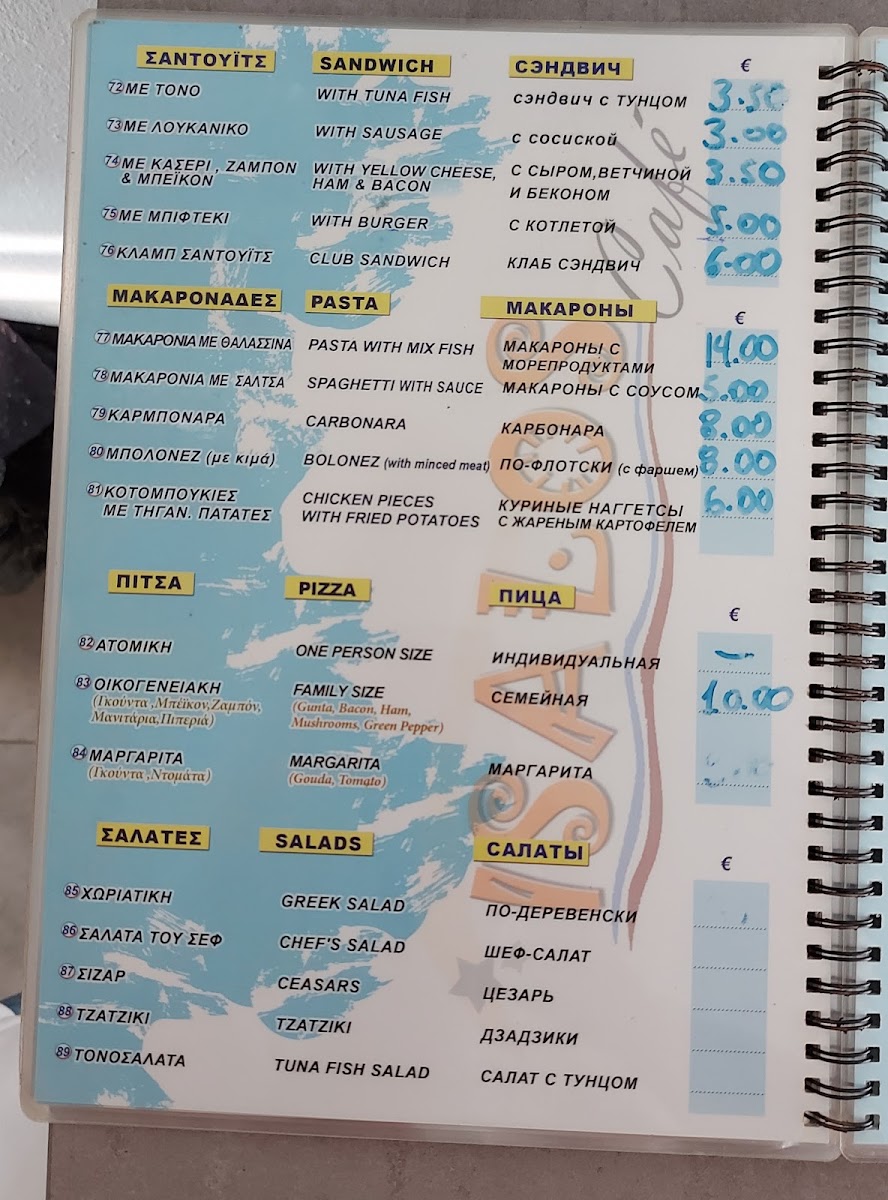 ΣΑΝΤΟΥΪΤΣ SANDWICH СЭНДВИЧ €
72 ΜΕ ΤΟΝΟ WITH TUNA FISH сэндвич с ТУНЦОМ 3.50
73 ΜΕ ΛΟΥΚΑΝΙΚΟ WITH SAUSAGE с сосиской 3.00
74 ΜΕ ΚΑΣΕΡΙ , ΖΑΜΠΟΝ WITH YELLOW CHEESE, С СЫРОМ,ВЕТЧИНОЙ 3.50
& ΜΠΕΪΚΟΝ HAM & BACON И БЕКОНОМ
75 ΜΕ ΜΠΙΦΤΕΚΙ WITH BURGER С КОТЛЕТОЙ 5.00
76 ΚΛΑΜΠ ΣΑΝΤΟΥΪΤΣ CLUB SANDWICH КЛАБ СЭНДВИЧ 6.00
ΜΑΚΑΡΟΝΑΔΕΣ PASTA МАКАРОНЫ €
77 ΜΑΚΑΡΟΝΙΑ ΜΕ ΘΑΛΑΣΣΙΝΑ PASTA WITH MIX FISH МАКАРОНЫ С 14.00
МОРЕПРОДУКТАМИ
78 ΜΑΚΑΡΟΝΙΑ ΜΕ ΣΑΛΤΣΑ SPAGHETTI WITH SAUCE МАКАРОНЫ С СОУСОМ 5.00
79 ΚΑΡΜΠΟΝΑΡΑ CARBONARA КАРБОНАРА 8.00
80 ΜΠΟΛΟΝΕΖ (με κιμά) BOLONEZ (with minced meat) ПО-ФЛОТСКИ (с фаршем) 8.00
81 ΚΟΤΟΜΠΟΥΚΙΕΣ CHICKEN PIECES КУРИНЫЕ НАГГЕТСЫ 6.00
ΜΕ ΤΗΓΑΝ. ΠΑΤΑΤΕΣ WITH FRIED POTATOES С ЖАРЕНЫМ КАРТОФЕЛЕМ
ΠΙΤΣΑ PIZZA ПИЦА €
82 ΑΤΟΜΙΚΗ ONE PERSON SIZE ИНДИВИДУАЛЬНАЯ —
83 ΟΙΚΟΓΕΝΕΙΑΚΗ FAMILY SIZE СЕМЕЙНАЯ 10.00
(Γκούντα ,Μπέϊκον,Ζαμπόν, (Gunta, Bacon, Ham,
Μανιτάρια,Πιπεριά) Mushrooms, Green Pepper)
84 ΜΑΡΓΑΡΙΤΑ MARGARITA МАРГАРИТА
(Γκούντα ,Ντομάτα) (Gouda, Tomato)
ΣΑΛΑΤΕΣ SALADS САЛАТЫ €
85 ΧΩΡΙΑΤΙΚΗ GREEK SALAD ПО-ДЕРЕВЕНСКИ
86 ΣΑΛΑΤΑ ΤΟΥ ΣΕΦ CHEF'S SALAD ШЕФ-САЛАТ
87 ΣΙΖΑΡ CEASARS ЦЕЗАРЬ
88 ΤΖΑΤΖΙΚΙ TZATZIKI ДЗАДЗИКИ
89 ΤΟΝΟΣΑΛΑΤΑ TUNA FISH SALAD САЛАТ С ТУНЦОМ
ISALOS Café